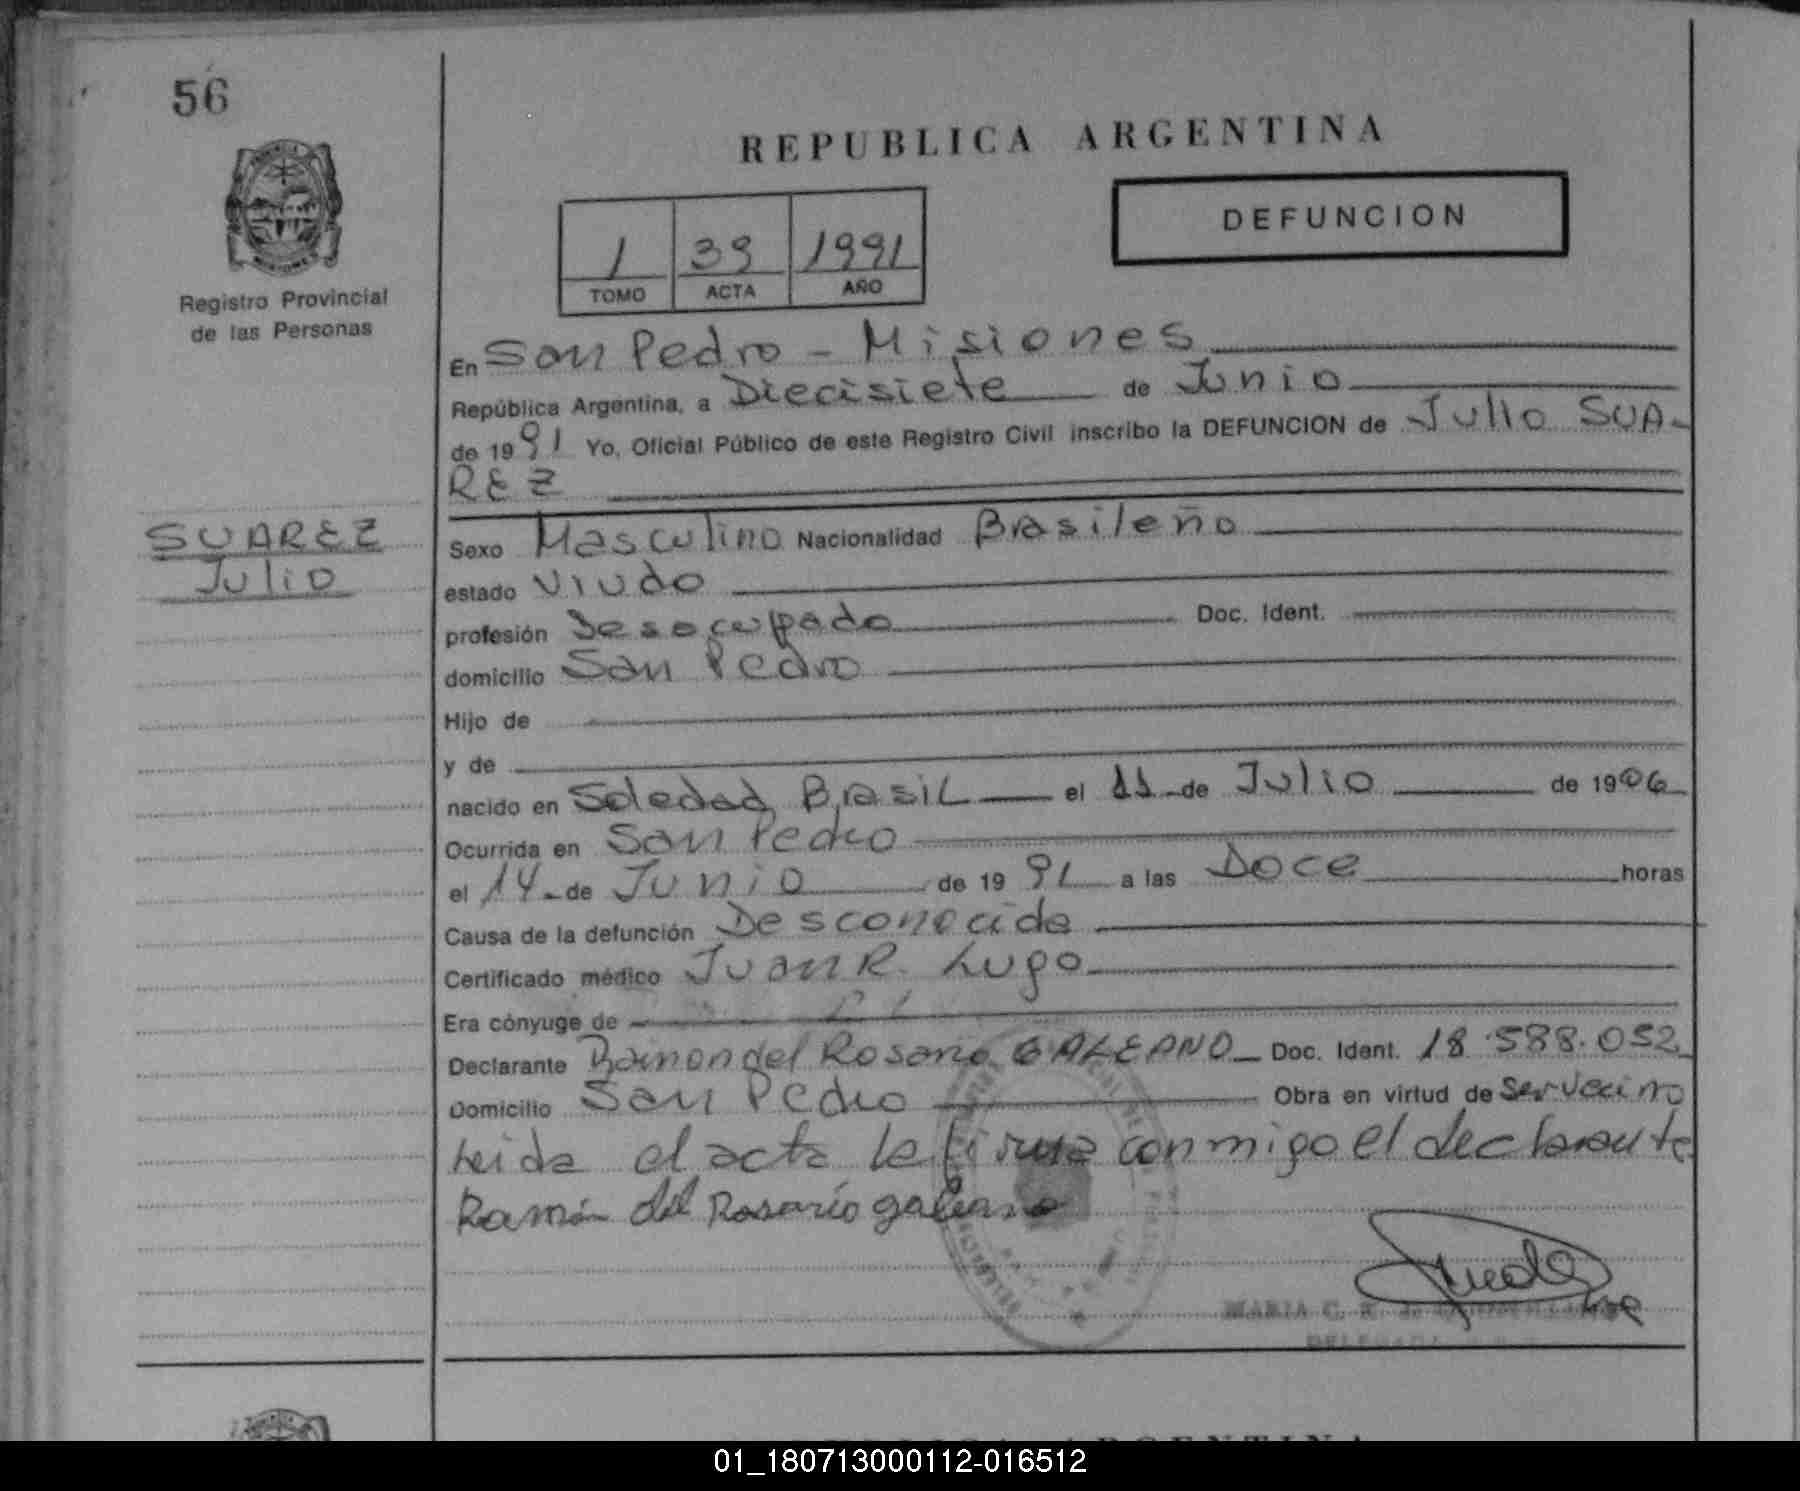 56
REPUBLICA ARGENTINA
DEFUNCION
1 39 1991
TOMO ACTA AÑO
Registro Provincial
de las Personas
En San Pedro - Misiones
República Argentina, a Diecisiete de Junio
de 1991 Yo, Oficial Público de este Registro Civil inscribo la DEFUNCION de Julio SUA-
REZ
SUAREZ
Julio
Sexo Masculino Nacionalidad Brasileño
estado Viudo
profesión Desocupado Doc. Ident.
domicilio San Pedro
Hijo de
y de
nacido en Soledad Brasil el 11 de Julio de 1906
Ocurrida en San Pedro
el 14 de Junio de 1991 a las Doce horas
Causa de la defunción Desconocida
Certificado médico Juan R. Lugo
Era cónyuge de
Declarante Ramon del Rosario GALEANO Doc. Ident. 18.588.052
Domicilio San Pedro Obra en virtud de ser vecino
Leida el acta la firma conmigo el declarante
Ramón del Rosario galeano
MARIA C.
DELEGADA
REPUBLICA ARGENTINA
01_180713000112-016512